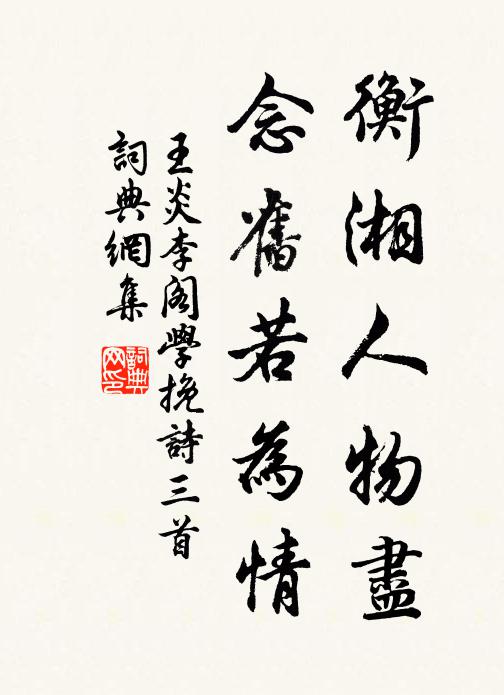 衡湘人物盡
念舊若為情
王炎李阁學挽詩三首
詞典網集
詞典
网印